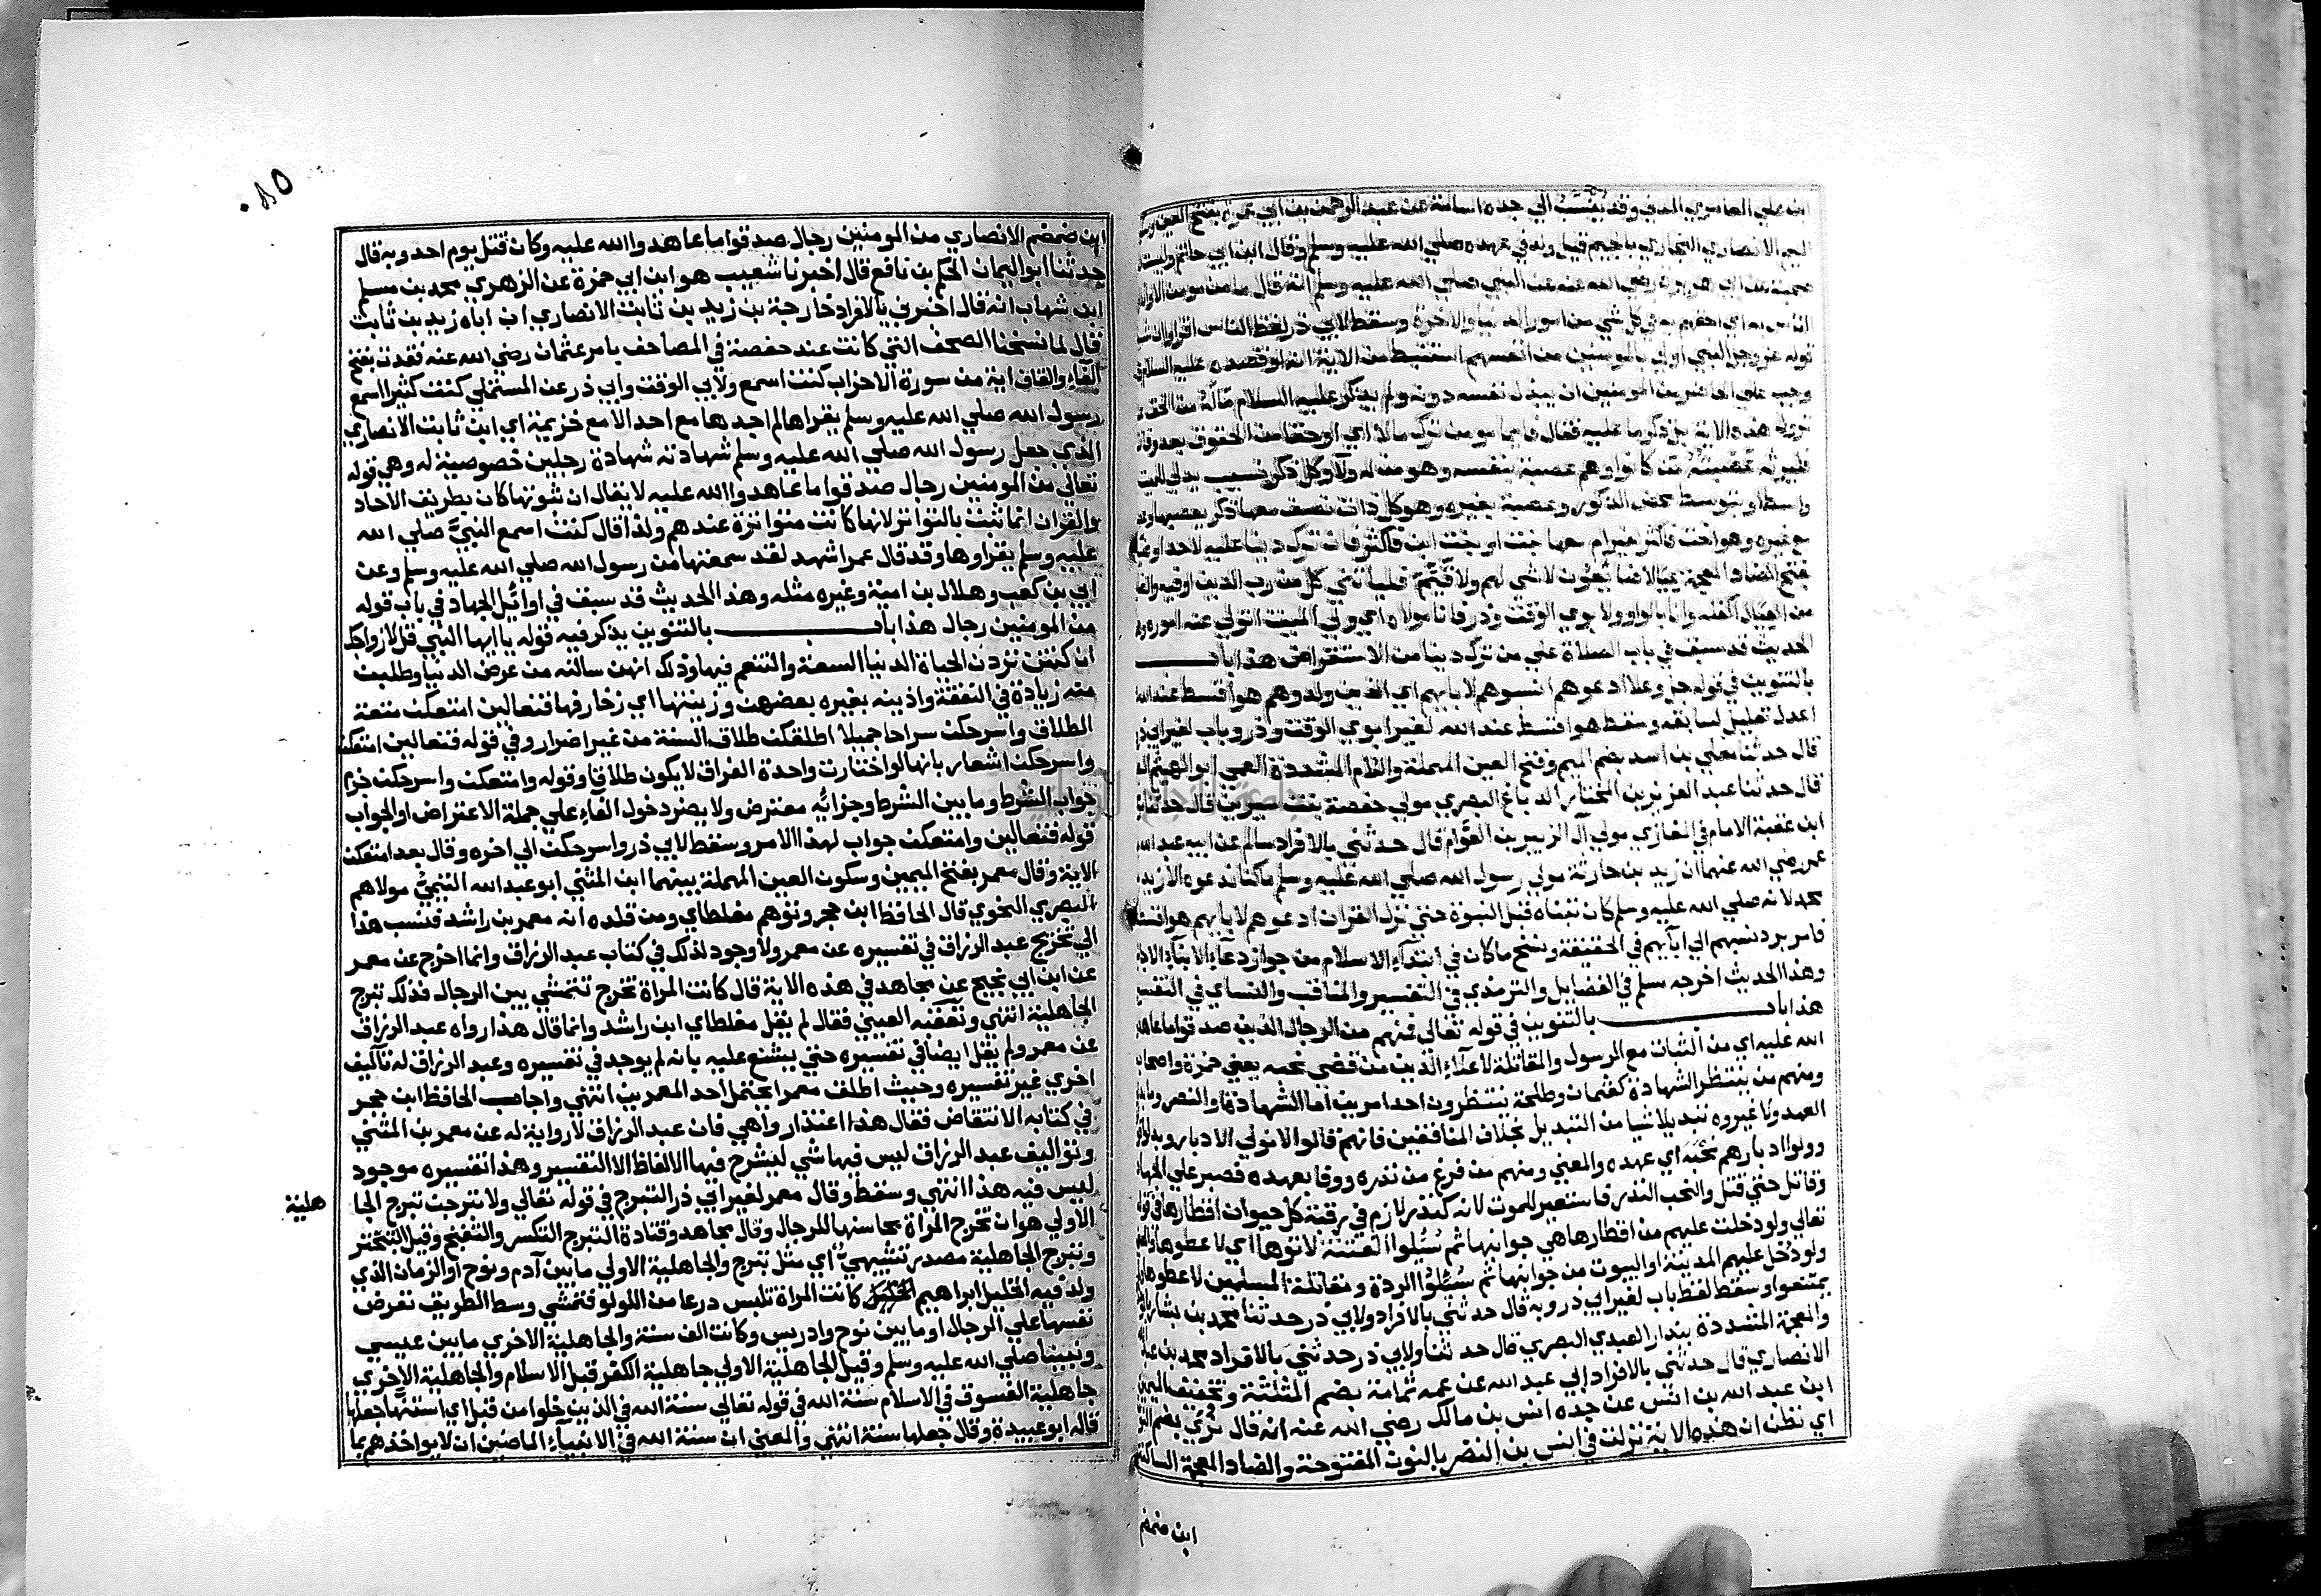 ابن علي العامري المدني وقد ينسب الي جده اسامة عن عبد الرحمن بن ابي عمرة بفتح العين وسكون
الميم الانصاري النجاري بالجيم قيل ولد في عهده صلي الله عليه وسلم وقال ابن ابي حاتم وليست
عن ابي هريرة رضي الله عنه عن النبي صلي الله عليه وسلم انه قال ما من مومن الا وانا
الناس به اي احقهم به في كل شي من امور الدنيا والاخرة وسقط لابي ذر لفظ الناس اقراوا ان شئتم
قوله عز وجل النبي اولي بالمومنين من انفسهم استنبط من الاية انه لو قصده عليه السلام
وجب علي الحاضر من المومنين ان يبذل نفسه دونه ولم يذكر عليه السلام ماله من الحق
نزول هذه الاية بل ذكر ما عليه فقال فايما مومن ترك مالا اي او حقا من الحقوق بعد وفاته
فليرثه عصبته من كانوا وهم عصبة بنفسه وهو من له ولا وكل ذكر نسيب يدلي للميت
واسطة او بتوسط محض الذكور وعصبة بغيره وهو كل ذات نصف معها ذكر يعصبها وعصبة
مع غيره وهو اخت فاكثر لغير ام معها بنت او بنت ابن فاكثر فان ترك دينا عليه لاحد او ضياعا
بفتح الضاد المعجمة عيالا ضايعون لا شي لهم ولا قيم فلياتني كل من رب الدين اوفيه والضايع
من العيال اكفله وانا بالواو ولابوي الوقت وذر فانا مولاه اي ولي الميت اتولي عنه اموره وهذا
الحديث قد سبق في باب الصلاة علي من ترك دينا من الاستقراض هذا باب
بالتنوين في قوله جل وعلا ادعوهم انسبوهم لابايهم اي الذين ولدوهم هو اقسط عند الله
اعدل تعليل لسابقه وسقط هو اقسط عند الله لغير ابوي الوقت وذر وباب لغير ابي ذر
قال حدثنا معلي بن اسد بضم الميم وفتح العين المهملة واللام المشددة العمي ابو الهيثم البصري
قال حدثنا عبد العزيز بن المختار الدباغ البصري مولي حفصة بنت سيرين قال حدثنا
ابن عقبة الامام في المغازي مولي آل الزبير بن العوام قال حدثني بالافراد سالم عن ابيه عبد الله
عمر رضي الله عنهما ان زيد بن حارثة مولي رسول الله صلي الله عليه وسلم ما كنا ندعوه الا زيد
محمد لانه صلي الله عليه وسلم كان تبناه قبل النبوة حتي نزل القران ادعوهم لابايهم هو اقسط
فامر برد نسبهم الي ابآيهم في الحقيقة ونسخ ما كان في ابتدآء الاسلام من جواز دعآء الابنآء الاجانب
وهذا الحديث اخرجه مسلم في الفضايل والترمذي في التفسير والمناقب والنساي في التفسير
هذا باب بالتنوين في قوله تعالي فمنهم من الرجال الذين صدقوا ما عاهدوا
الله عليه اي من الثبات مع الرسول والمقاتلة لاعدآء الدين من قضي نحبه يعني حمزة واصحابه
ومنهم من ينتظر الشهادة كعثمان وطلحة ينتظرون احد امرين اما الشهادة او النصر وما بدلوا
العهد ولا غيروه تبديلا شيا من التبديل بخلاف المنافقين فانهم قالوا لا نولي الادبار وبدلوا
وولوا ادبارهم نحبه اي عهده والمعني ومنهم من فرغ من نذره ووفا بعهده فصبر علي الجهاد
وقاتل حتي قتل والنحب النذر فاستعير للموت لانه كنذر لازم في رقبة كل حيوان اقطارها في قوله
تعالي ولو دخلت عليهم من اقطارها هي جوانبها ثم سئلوا الفتنة لاتوها اي لاعطوها والمعني
ولو دخل عليهم المدينة او البيوت من جوانبها ثم سئلوا الردة ومقاتلة المسلمين لاعطوها ولم
يمتنعوا وسقط لفظ باب لغير ابي ذر وبه قال حدثني بالافراد ولابي ذر حدثنا محمد بن بشار بالموحدة
والمعجمة المشددة بندار العبدي البصري قال حدثنا ولابي ذر حدثني بالافراد محمد بن عبد الله
الانصاري قال حدثني بالافراد ابي عبد الله عن عمه ثمامة بضم المثلثة وتخفيف الميم
ابن عبد الله بن انس عن جده انس بن مالك رضي الله عنه انه قال نري بضم النون
اي نظن ان هذه الاية نزلت في انس بن النضر بالنون المفتوحة والضاد المعجمة الساكنة
ابن ضمضم
٨٥٠
ابن ضمضم الانصاري من المومنين رجال صدقوا ما عاهدوا الله عليه وكان قتل يوم احد وبه قال
حدثنا ابو اليمان الحكم بن نافع قال اخبرنا شعيب هو ابن ابي حمزة عن الزهري محمد بن مسلم
ابن شهاب انه قال اخبرني بالافراد خارجة بن زيد بن ثابت الانصاري ان اباه زيد بن ثابت
قال لما نسخنا الصحف التي كانت عند حفصة في المصاحف بامر عثمان رضي الله عنه فقدت بفتح
الفآء والقاف اية من سورة الاحزاب كنت اسمع ولابي الوقت وابي ذر عن المستملي كنت كثيرا اسمع
رسول الله صلي الله عليه وسلم يقراها لم اجدها مع احد الا مع خزيمة اي ابن ثابت الانصاري
الذي جعل رسول الله صلي الله عليه وسلم شهادته شهادة رجلين خصوصية له وهي قوله
تعالي من المومنين رجال صدقوا ما عاهدوا الله عليه لا يقال ان ثبوتها كان بطريق الاحاد
والقران انما ثبت بالتواتر لانها كانت متواترة عندهم ولذا قال كنت اسمع النبي صلي الله
عليه وسلم يقراوها وقد قال عمر اشهد لقد سمعتها من رسول الله صلي الله عليه وسلم وعن
ابي بن كعب وهلال بن امية وغيره مثله وهذا الحديث قد سبق في اوائل الجهاد في باب قوله
من المومنين رجال هذا باب بالتنوين يذكر فيه قوله يا ايها النبي قل لازواجك
ان كنتن تردن الحياة الدنيا السعة والتنعم فيها وذلك انهن سالنه من عرض الدنيا وطلبت
منه زيادة في النفقة واذينه بغيره بعضهن وزينتها اي زخارفها فتعالين امتعكن متعة
الطلاق واسرحكن سراحا جميلا اطلقكن طلاق السنة من غير اضرار وفي قوله فتعالين امتعكن
واسرحكن اشعار بانها لو اختارت واحدة الفراق لا يكون طلاقا وقوله وامتعكن واسرحكن جزم
جواب الشرط وما بين الشرط وجزائه معترض ولا يضر دخول الفاء علي جملة الاعتراض او الجواب
قوله فتعالين وامتعكن جواب لهذا الامر وسقط لابي ذر واسرحكن الي اخره وقال بعد امتعكن
الاية وقال معمر بفتح الميمين وسكون العين المهملة بينهما ابن المثني ابو عبد الله التيمي مولاهم
البصري النحوي قال الحافظ ابن حجر وتوهم مغلطاي ومن قلده انه معمر بن راشد فنسب هذا
الي تخريج عبد الرزاق في تفسيره عن معمر ولا وجود لذلك في كتاب عبد الرزاق وانما اخرج عن معمر
عن ابن ابي نجيح عن مجاهد في هذه الاية قال كانت المراة تخرج تتمشي بين الرجال فذلك تبرج
الجاهلية انتهي وتعقبه العيني فقال لم يقل مغلطاي ابن راشد وانما قال هذا رواه عبد الرزاق
عن معمر ولم يقل ايضا في تفسيره حتي يشنع عليه بانه لم يوجد في تفسيره وعبد الرزاق له تآليف
اخري غير تفسيره وحيث اطلق معمرا يحتمل احد المعمرين انتهي واجاب الحافظ ابن حجر
في كتابه الانتقاض فقال هذا اعتذار واهي فان عبد الرزاق لا رواية له عن معمر بن المثني
وتواليف عبد الرزاق ليس فيها شي ليشرح فيها الالفاظ الا التفسير وهذا تفسيره موجود
ليس فيه هذا انتهي وسقط وقال معمر لغير ابي ذر التبرج في قوله تعالي ولا تبرجن تبرج الجا
هلية
الاولي هو ان تخرج المراة محاسنها للرجال وقال مجاهد وقتادة التبرج التكسر والتغنج وقيل التبختر
وتبرج الجاهلية مصدر تشبيهي اي مثل تبرج والجاهلية الاولي ما بين آدم ونوح او الزمان الذي
ولد فيه الخليل ابراهيم كانت المراة تلبس درعا من اللولو فتمشي وسط الطريق تعرض
نفسها علي الرجال او ما بين نوح وادريس وكانت الف سنة والجاهلية الاخري ما بين عيسي
ونبينا صلي الله عليه وسلم وقيل الجاهلية الاولي جاهلية الكفر قبل الاسلام والجاهلية الاخري
جاهلية الفسوق في الاسلام سنة الله في قوله تعالي سنة الله في الذين خلوا من قبل اي استنها جعلها
قاله ابو عبيدة وقال جعلها سنة انتهي والمعني ان سنة الله في الانبيآء الماضين ان لا يواخذهم بما